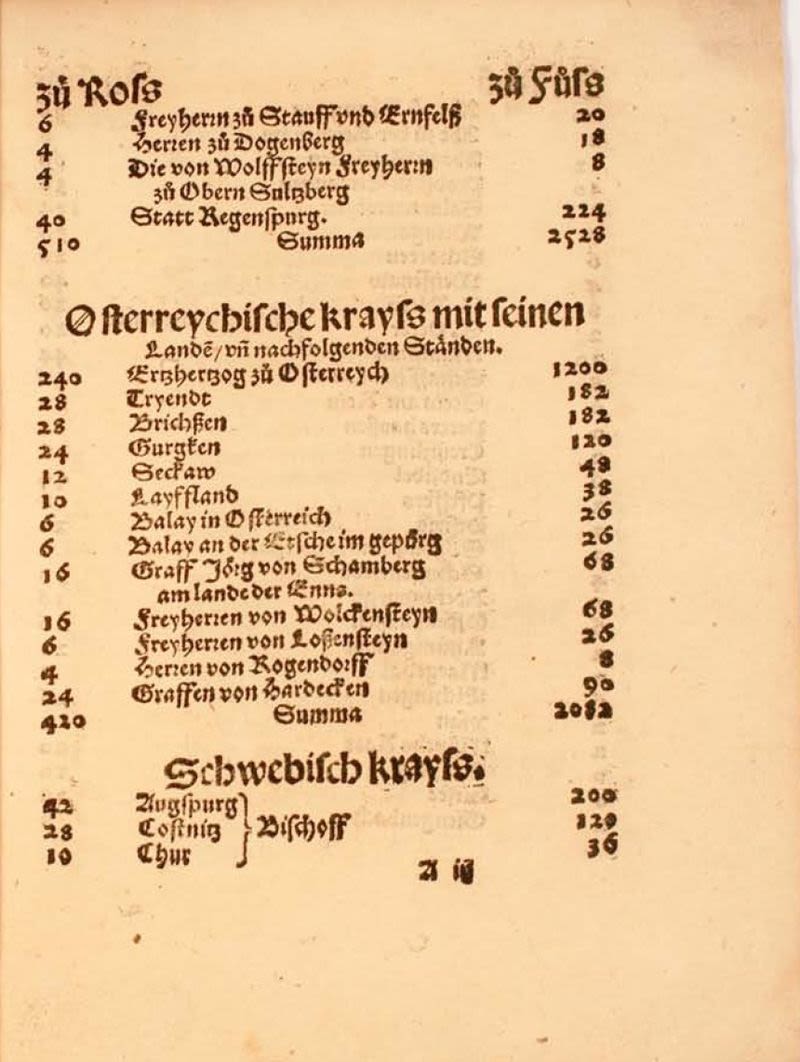 zů Roſs zů Fůſs
6 Freyherrn zů Stauff vnd Ernfelß 20
4 Herren zů Dogenberg 18
4 Die von Wolffſteyn Freyherrn 8
zů Obern Sultzberg
40 Statt Regenſpurg. 224
510 Summa 2528
Oſterreychiſche krayſs mit ſeinen
Landẽ/ vñ nachfolgenden Stånden.
240 Ertzhertzog zů Oſterreych 1200
28 Tryendt 182
28 Brichßen 182
24 Gurgken 120
12 Seckaw 48
10 Layffland 38
6 Balay in Oſterreich 26
6 Balay an der Etſche im gepörg 26
16 Graff Jörg von Schamberg 68
am lande der Enns.
16 Freyherren von Wolckenſteyn 68
6 Freyherren von Loßenſteyn 26
4 Herren von Rogendorff 8
24 Graffen von Hardecken 90
420 Summa 2082
Schwebiſch krayſs.
42 Augſpurg 200
28 Coſtnitz } Biſchoff 120
10 Chur 36
A iij